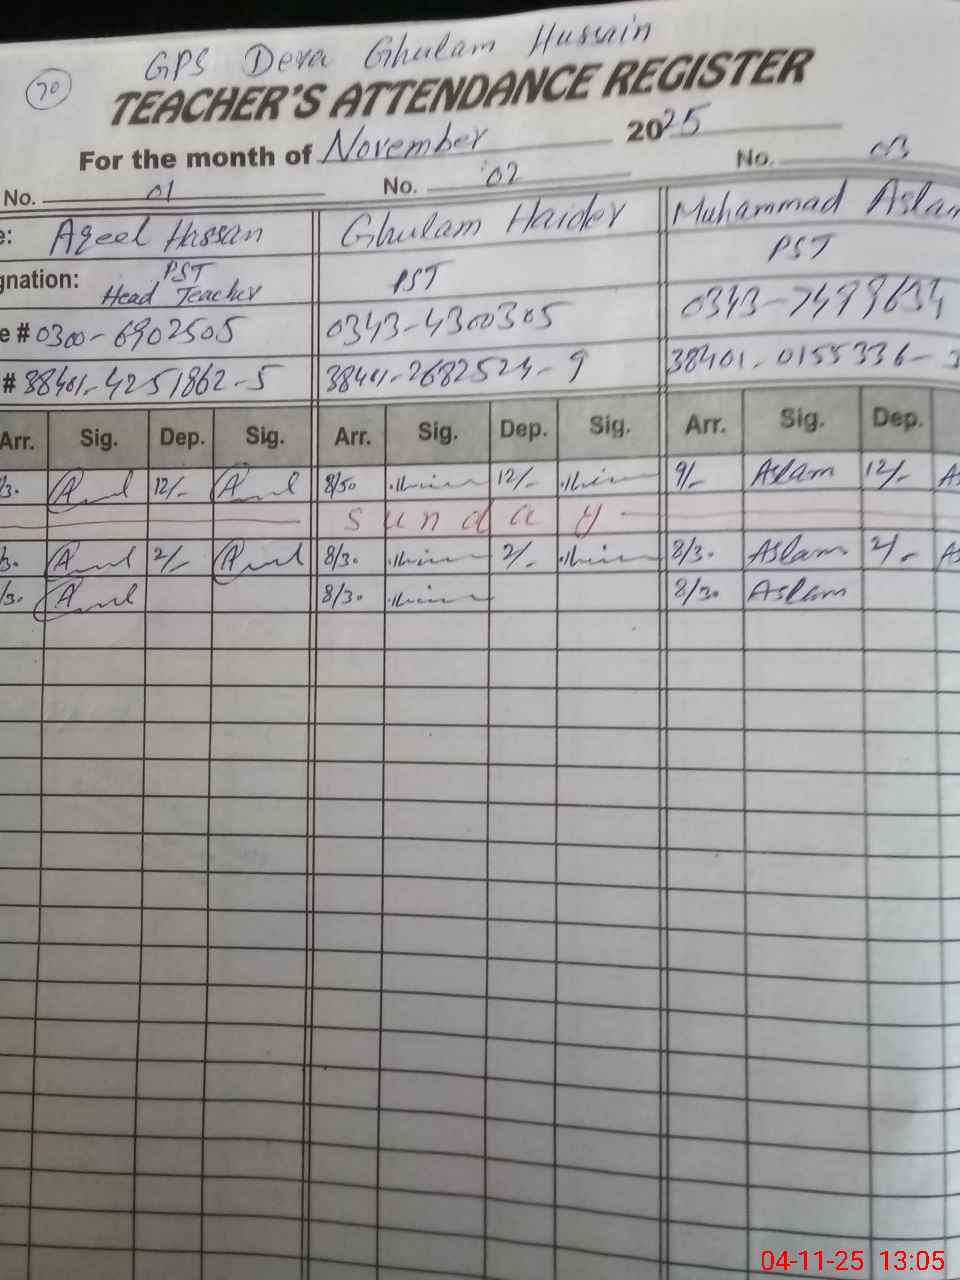 GPS Deva Ghulam Hussain
70
TEACHER'S ATTENDANCE REGISTER
For the month of November 2025
No. 01 No. 02 No. 03
e: Aqeel Hassan Ghulam Haider Muhammad Aslam
gnation: PST Head Teacher PST PST
e # 0300-6902505 0343-4300305
# 38401-4251862-5 38401-2682524-9 38401-0155336-
Arr. Sig. Dep. Sig. Arr. Sig. Dep. Sig. Arr. Sig. Dep.
/3. 12/- 8/50 12/- 9/- Aslam 12/- As
Sunday
/3. 2/- 8/30 2/- 8/30 Aslam 2/- As
/3. 8/30 8/30 Aslam
04-11-25 13:05